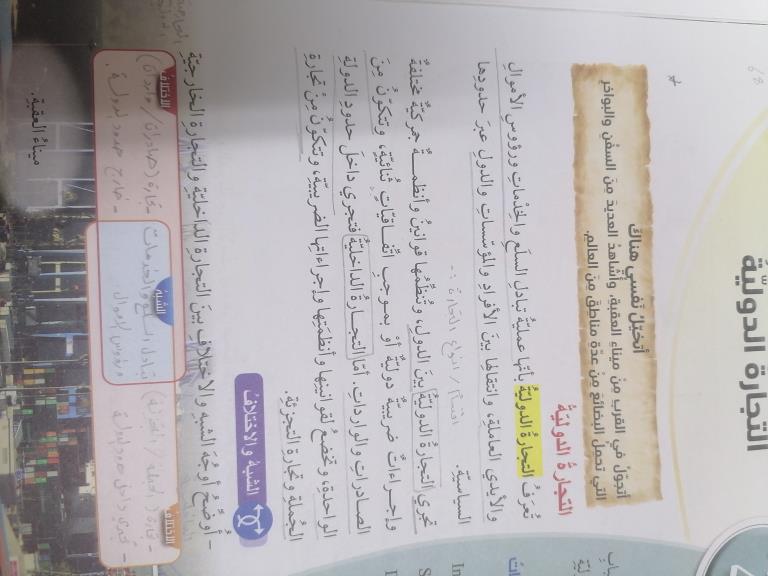 التجارة الدولية
أتخيّل نفسي هناك
أتجوّل في القرب من ميناء العقبة، وأشاهد العديد من السفن والبواخر
التي تحمل البضائع من عدّة مناطق من العالم.
التجارةُ الدوليّةُ
تُعرَفُ التجارةُ الدوليّةُ بأنّها عمليّةُ تبادلِ السلَعِ والخِدْماتِ ورؤوسِ الأموالِ
والأيدي العاملةِ، وانتقالها بينَ الأفرادِ والمؤسّساتِ والدولِ عبرَ حدودِها
السياسيّة.
أقسام / أنواع التجارة :-
تجري التجارةُ الدوليّةُ بينَ الدولِ، وتُنظّمُها قوانينُ وأنظمةٌ جمركيّةٌ مختلفةٌ
وإجراءاتٌ ضريبيّةٌ دوليّةٌ أو بموجبِ اتّفاقيّاتٍ ثُنائيّةٍ، وتتكوّنُ مِنَ
الصادراتِ والوارداتِ. أمّا التجارةُ الداخليّةُ فتجري داخلَ حدودِ الدولةِ
الواحدةِ، وتخضعُ لقوانينِها وأنظمتِها وإجراءاتِها الضريبيّةِ، وتتكوّنُ مِنْ تجارةِ
الجُملةِ وتجارةِ التجزئةِ.
الشبهُ والاختلافُ
- أُوضّحُ أوجُهَ الشبهِ والاختلافِ بينَ التجارةِ الداخليّةِ والتجارةِ الخارجيّةِ
الاختلافُ
الشبهُ
الاختلافُ
- تجارة (صادرات / واردات)
- خارج حدود الدولة.
تبادل السلع والخدمات
ورؤوس الأموال
- تجارة (الجملة / التجزئة)
- تجري داخل حدود الدولة
ميناءُ العقبةِ.